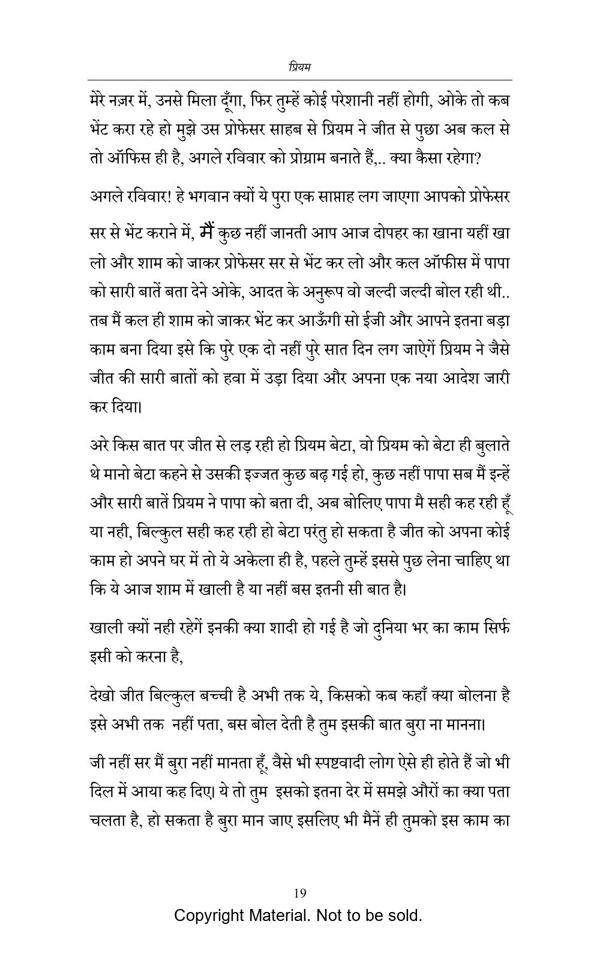 प्रियम
मेरे नज़र में, उनसे मिला दूँगा, फिर तुम्हें कोई परेशानी नहीं होगी, ओके तो कब
भेंट करा रहे हो मुझे उस प्रोफेसर साहब से प्रियम ने जीत से पुछा अब कल से
तो ऑफिस ही है, अगले रविवार को प्रोग्राम बनाते हैं,.. क्या कैसा रहेगा?
अगले रविवार! हे भगवान क्यों ये पुरा एक साप्ताह लग जाएगा आपको प्रोफेसर
सर से भेंट कराने में, मैं कुछ नहीं जानती आप आज दोपहर का खाना यहीं खा
लो और शाम को जाकर प्रोफेसर सर से भेंट कर लो और कल ऑफीस में पापा
को सारी बातें बता देने ओके, आदत के अनुरूप वो जल्दी जल्दी बोल रही थी..
तब मैं कल ही शाम को जाकर भेंट कर आऊँगी सो ईजी और आपने इतना बड़ा
काम बना दिया इसे कि पुरे एक दो नहीं पुरे सात दिन लग जाऐगें प्रियम ने जैसे
जीत की सारी बातों को हवा में उड़ा दिया और अपना एक नया आदेश जारी
कर दिया।
अरे किस बात पर जीत से लड़ रही हो प्रियम बेटा, वो प्रियम को बेटा ही बुलाते
थे मानो बेटा कहने से उसकी इज्जत कुछ बढ़ गई हो, कुछ नहीं पापा सब मैं इन्हें
और सारी बातें प्रियम ने पापा को बता दी, अब बोलिए पापा मै सही कह रही हूँ
या नही, बिल्कुल सही कह रही हो बेटा परंतु हो सकता है जीत को अपना कोई
काम हो अपने घर में तो ये अकेला ही है, पहले तुम्हें इससे पुछ लेना चाहिए था
कि ये आज शाम में खाली है या नहीं बस इतनी सी बात है।
खाली क्यों नही रहेगें इनकी क्या शादी हो गई है जो दुनिया भर का काम सिर्फ
इसी को करना है,
देखो जीत बिल्कुल बच्ची है अभी तक ये, किसको कब कहाँ क्या बोलना है
इसे अभी तक नहीं पता, बस बोल देती है तुम इसकी बात बुरा ना मानना।
जी नहीं सर मैं बुरा नहीं मानता हूँ, वैसे भी स्पष्टवादी लोग ऐसे ही होते हैं जो भी
दिल में आया कह दिए। ये तो तुम इसको इतना देर में समझे औरों का क्या पता
चलता है, हो सकता है बुरा मान जाए इसलिए भी मैनें ही तुमको इस काम का
19
Copyright Material. Not to be sold.